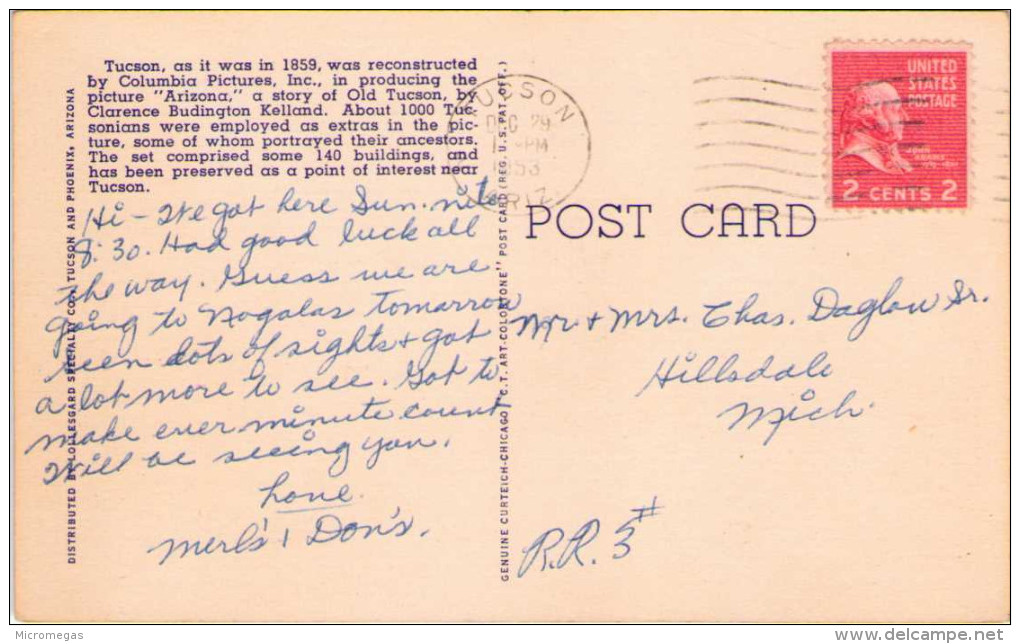 Tucson, as it was in 1859, was reconstructed
by Columbia Pictures, Inc., in producing the
picture "Arizona," a story of Old Tucson, by
Clarence Budington Kelland. About 1000 Tuc-
sonians were employed as extras in the pic-
ture, some of whom portrayed their ancestors.
The set comprised some 140 buildings, and
has been preserved as a point of interest near
Tucson.
Hi - We got here Sun. nite
8:30. Had good luck all
the way. Guess we are
going to Nogalas tomarrow
seen lots of sights & got
a lot more to see. Got to
make ever minute count
Will be seeing you.
Love
Merl's & Don's.
DISTRIBUTED BY LOLLESGARD SPECIALTY CO., TUCSON AND PHOENIX, ARIZONA
GENUINE CURTEICH-CHICAGO "C. T. ART-COLORTONE" POST CARD (REG. U. S. PAT. OFF.)
TUCSON
DEC 29
PM
1953
ARIZ.
UNITED
STATES
POSTAGE
JOHN
ADAMS
2 CENTS 2
POST CARD
Mr & Mrs. Chas. Daglow Sr.
Hillsdale
Mich.
R.R. 3#
Micromegas
delcampe.net